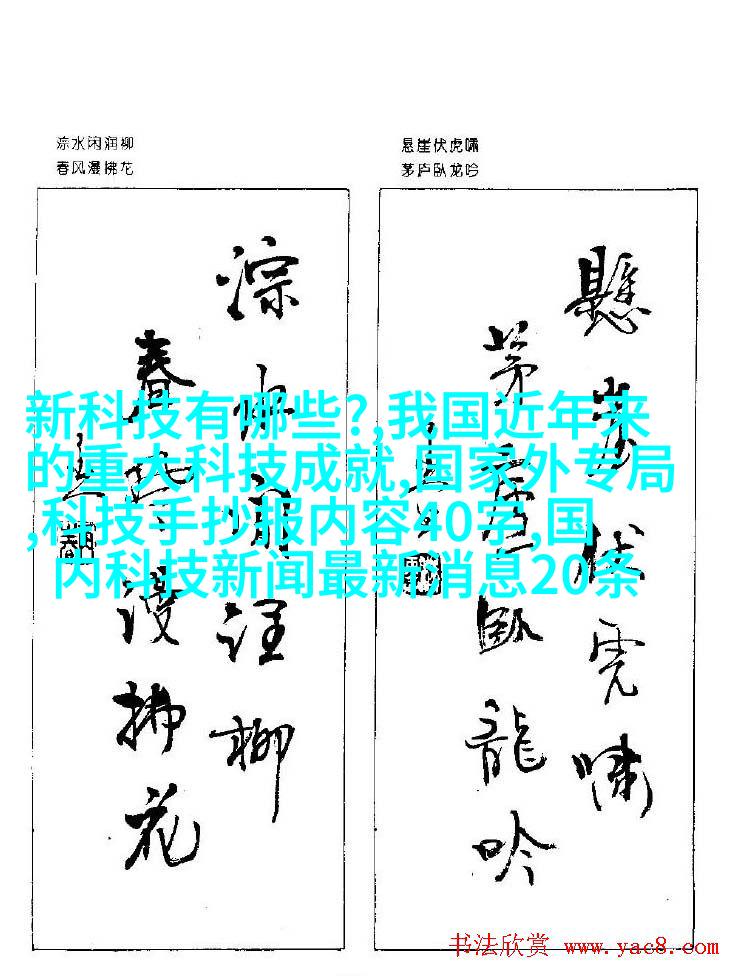 淙水闲润柳
春风漫拂花
悬崖伏虎啸
茅庐卧龙吟
淙水闲润柳
春风漫拂花
懸崖伏虎嘯
茅廬臥龍吟
新科技有哪些?,我国近年来
的重大科技成就,国家外专局
,科技手抄报内容40字,国
内科技新闻最新消息20条
书法欣赏 www.yac8.com